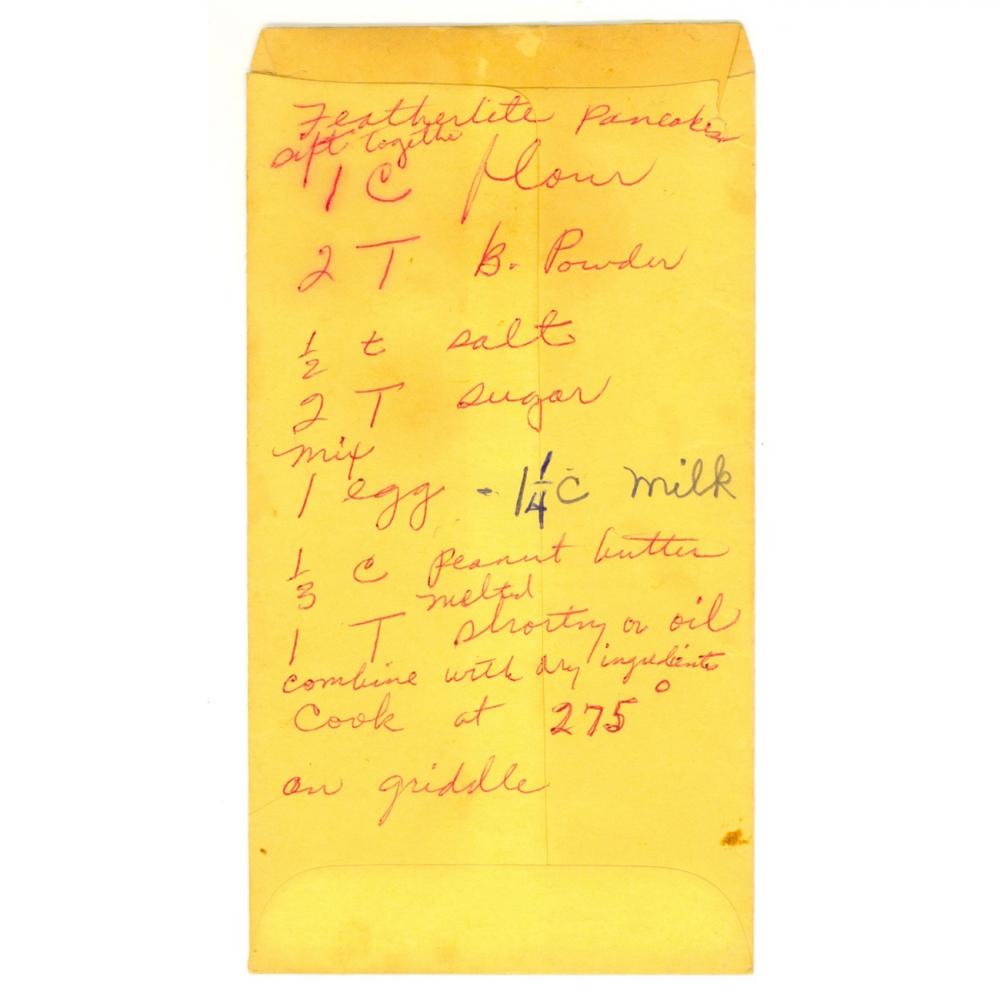 Featherlite Pancakes
sift together
1 C flour
2 T B. Powder
½ t salt
2 T sugar
mix
1 egg - 1¼ C milk
⅓ C peanut butter
melted
1 T shortng or oil
combine with dry ingredients
Cook at 275°
on griddle